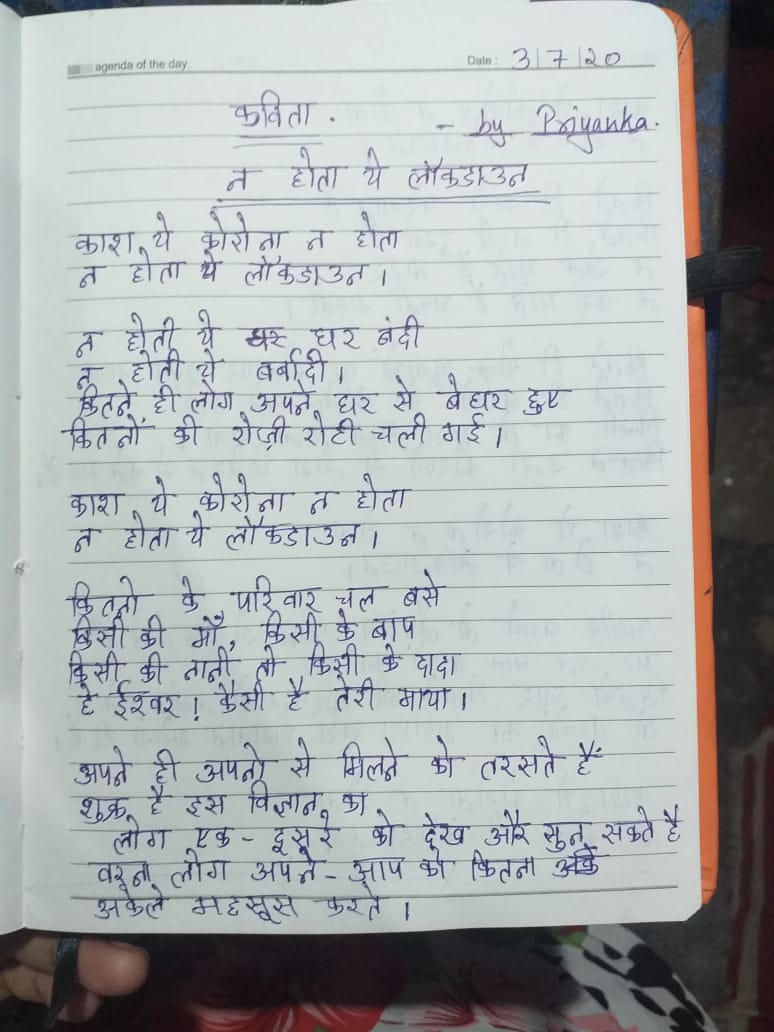 agenda of the day
Date : 3/7/20
कविता . - by Priyanka.
न होता ये लॉकडाउन
काश ये कोरोना न होता
न होता ये लॉकडाउन।
न होती ये घर बंदी
न होती ये बर्बादी।
कितने ही लोग अपने घर से बेघर हुए
कितनों की रोज़ी रोटी चली गई।
काश ये कोरोना न होता
न होता ये लॉकडाउन।
कितनो के परिवार चल बसे
किसी की माँ, किसी के बाप
किसी की नानी तो किसी के दादा
हे ईश्वर! कैसी है तेरी माया।
अपने ही अपनो से मिलने को तरसते हैं
शुक्र है इस विज्ञान का
लोग एक-दूसरे को देख और सुन सकते है
वरना लोग अपने-आप को कितना
अकेले महसूस करते।